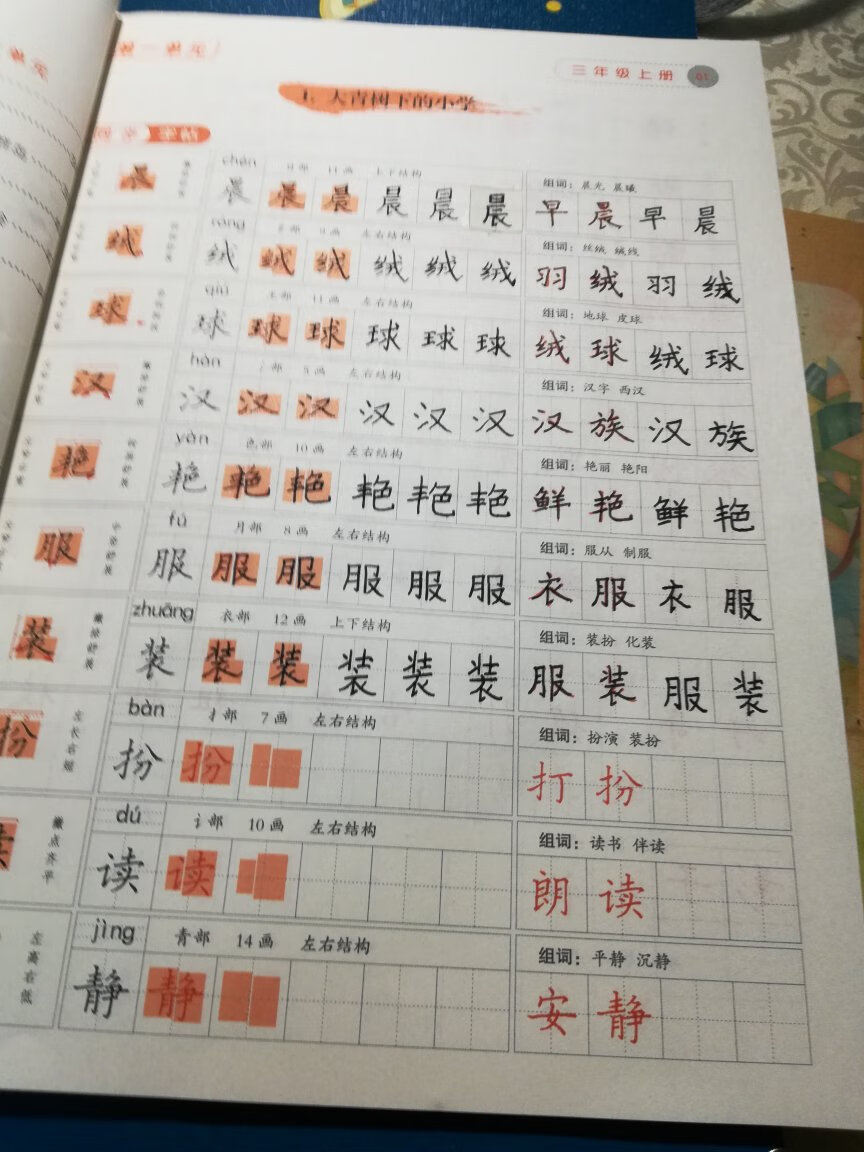 三年级上册 01
1. 大青树下的小学
chén 日部 11画 上下结构 组词：晨光 晨曦
晨 晨 晨 晨 晨 晨 晨 早 晨 早 晨
róng 纟部 9画 左右结构 组词：丝绒 绒线
绒 绒 绒 绒 绒 绒 绒 羽 绒 羽 绒
qiú 王部 11画 左右结构 组词：地球 皮球
球 球 球 球 球 球 球 绒 球 绒 球
hàn 氵部 5画 左右结构 组词：汉字 西汉
汉 汉 汉 汉 汉 汉 汉 汉 族 汉 族
yàn 色部 10画 左右结构 组词：艳丽 艳阳
艳 艳 艳 艳 艳 艳 艳 鲜 艳 鲜 艳
fú 月部 8画 左右结构 组词：服从 制服
服 服 服 服 服 服 服 衣 服 衣 服
zhuāng 衣部 12画 上下结构 组词：装扮 化装
装 装 装 装 装 装 装 服 装 服 装
bàn 扌部 7画 左右结构 组词：扮演 装扮
扮 左长右短 扮 扮 打 扮
dú 讠部 10画 左右结构 组词：读书 伴读
读 撇点齐平 读 读 朗 读
jìng 青部 14画 左右结构 组词：平静 沉静
左高右低 静 静 安 静